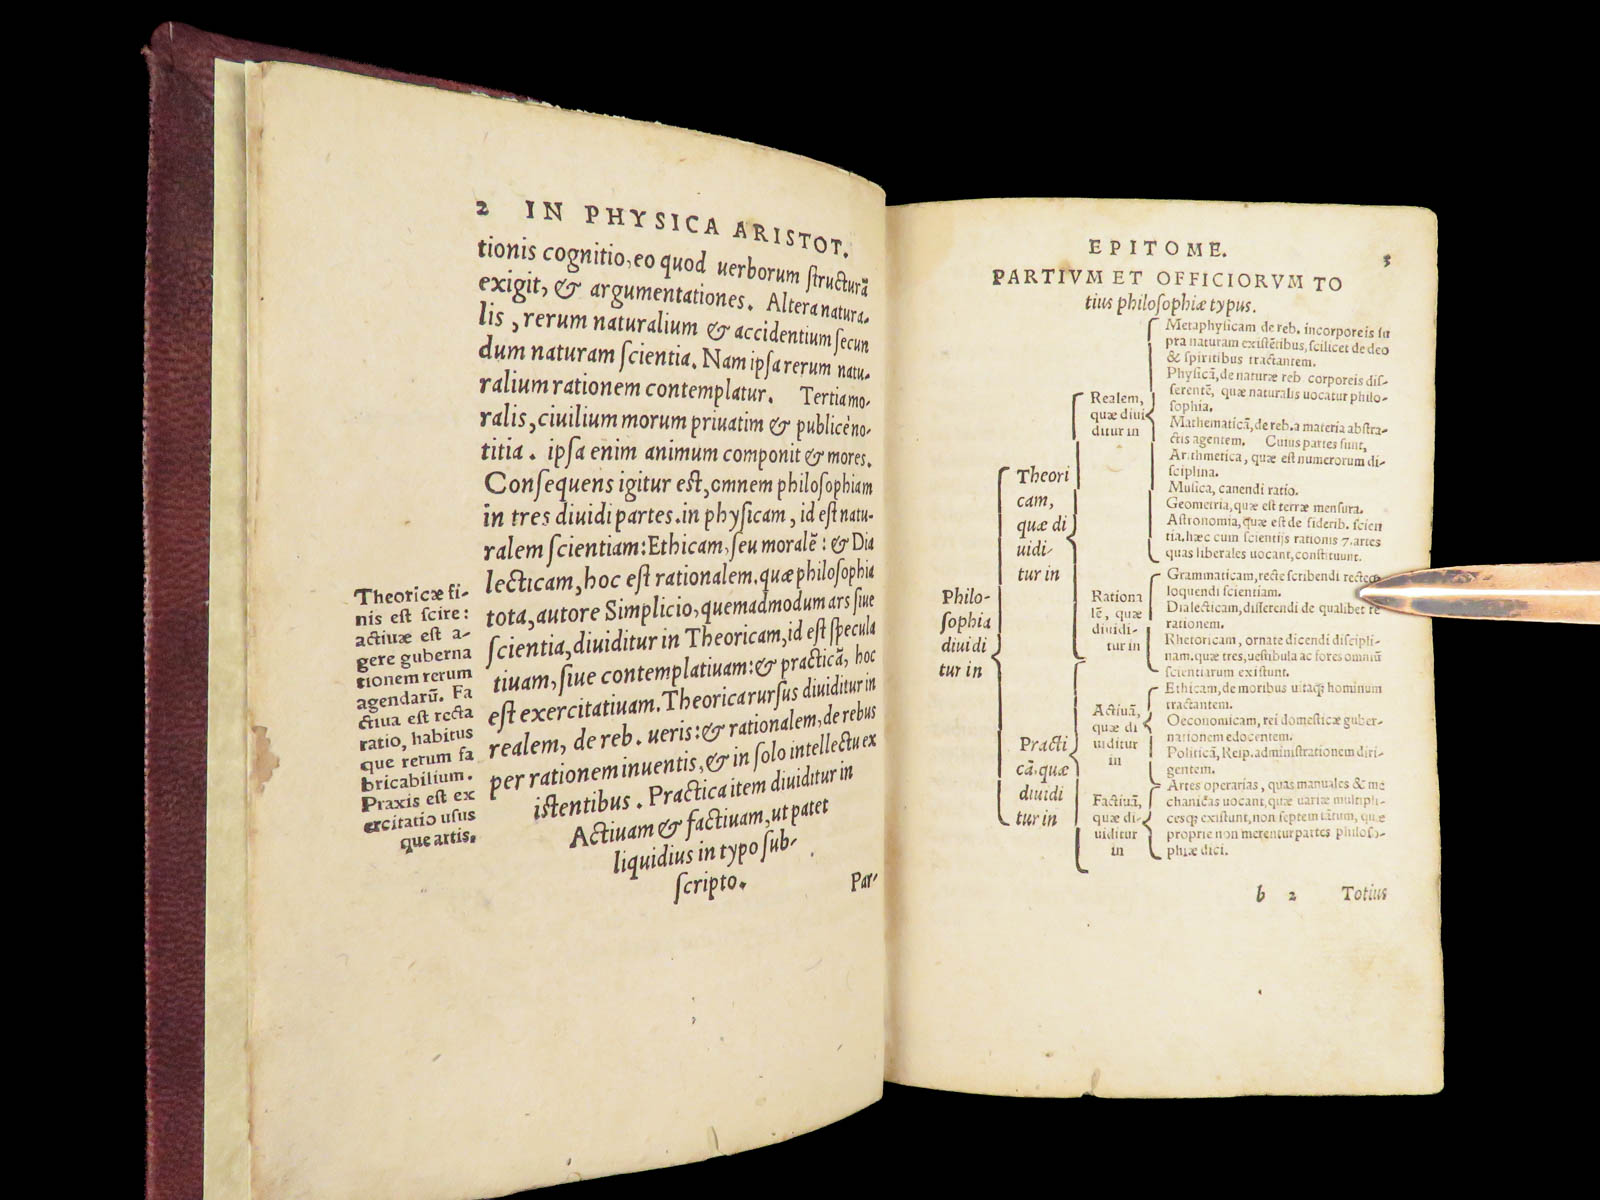 2 IN PHYSICA ARISTOT.
tionis cognitio, eo quod uerborum structurã
exigit, & argumentationes. Altera natura-
lis, rerum naturalium & accidentium secun
dum naturam scientia. Nam ipsa rerum natu-
ralium rationem contemplatur. Tertia mo-
ralis, ciuilium morum priuatim & publicè no-
titia. ipsa enim animum componit & mores.
Consequens igitur est, omnem philosophiam
in tres diuidi partes. in physicam, id est natu-
ralem scientiam: Ethicam, seu moralẽ: & Dia
lecticam, hoc est rationalem. quæ philosophia
tota, autore Simplicio, quemadmodum ars siue
scientia, diuiditur in Theoricam, id est specula
tiuam, siue contemplatiuam: & practicã, hoc
est exercitatiuam. Theorica rursus diuiditur in
realem, de reb. ueris: & rationalem, de rebus
per rationem inuentis, & in solo intellectu ex
istentibus. Practica item diuiditur in
Actiuam & factiuam, ut patet
liquidius in typo sub-
scripto.
Par-
Theoricæ fi-
nis est scire:
actiuæ est a-
gere guberna
tionem rerum
agendarũ. Fa
ctiua est recta
ratio, habitus
que rerum fa
bricabilium.
Praxis est ex
ercitatio usus
que artis.
EPITOME. 3
PARTIVM ET OFFICIORVM TO
tius philosophiæ typus.
Philo-
sophia
diuidi
tur in
Theori
cam,
quæ di
uidi-
tur in
Realem,
quæ diui
ditur in
Metaphysicam de reb. incorporeis su
pra naturam existẽtibus, scilicet de deo
& spiritibus tractantem.
Physicã, de naturæ reb corporeis dis-
serentẽ, quæ naturalis uocatur philo-
sophia.
Mathematicã, de reb. a materia abstra-
ctis agentem. Cuius partes sunt,
Arithmetica, quæ est numerorum di-
sciplina.
Musica, canendi ratio.
Geometria, quæ est terræ mensura.
Astronomia, quæ est de siderib. scien
tia. hæc cum scientijs rationis 7. artes
quas liberales uocant, constituunt.
Rationa
lẽ, quæ
diuidi-
tur in
Grammaticam, recte scribendi recteq;
loquendi scientiam.
Dialecticam, disserendi de qualibet re
rationem.
Rhetoricam, ornate dicendi discipli-
nam. quæ tres, uestibula ac fores omniũ
scientiarum existunt.
Practi
cã, quæ
diuidi
tur in
Actiuã,
quæ di
uiditur
in
Ethicam, de moribus uitaq; hominum
tractantem.
Oeconomicam, rei domesticæ guber-
nationem edocentem.
Politicã, Reip. administrationem diri-
gentem.
Factiuã,
quæ di-
uiditur
in
Artes operarias, quas manuales & me
chanicas uocant, quæ uariæ multipli-
cesq; existunt, non septem tãtum, quæ
proprie non merentur partes philoso-
phiæ dici.
b 2 Totius